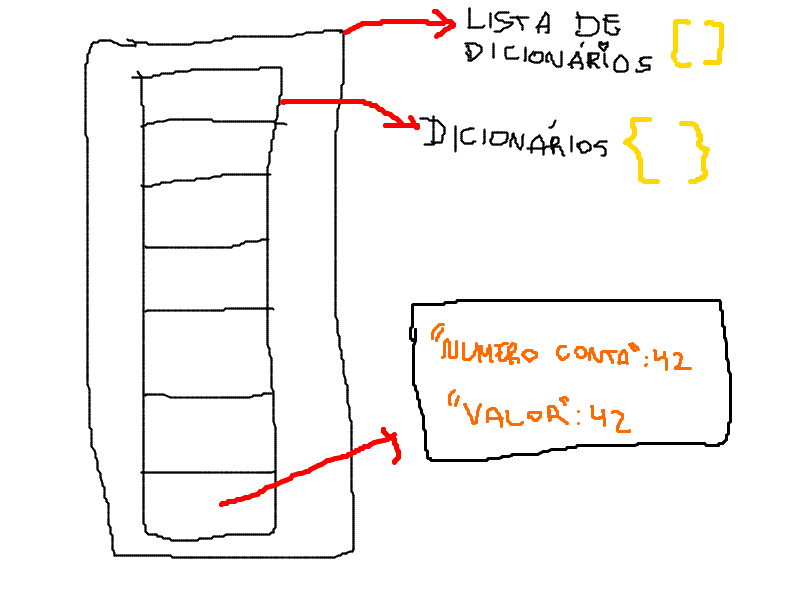 LISTA DE
DICIONÁRIOS []
DICIONÁRIOS { }
"NUMERO CONTA":42
"VALOR":42